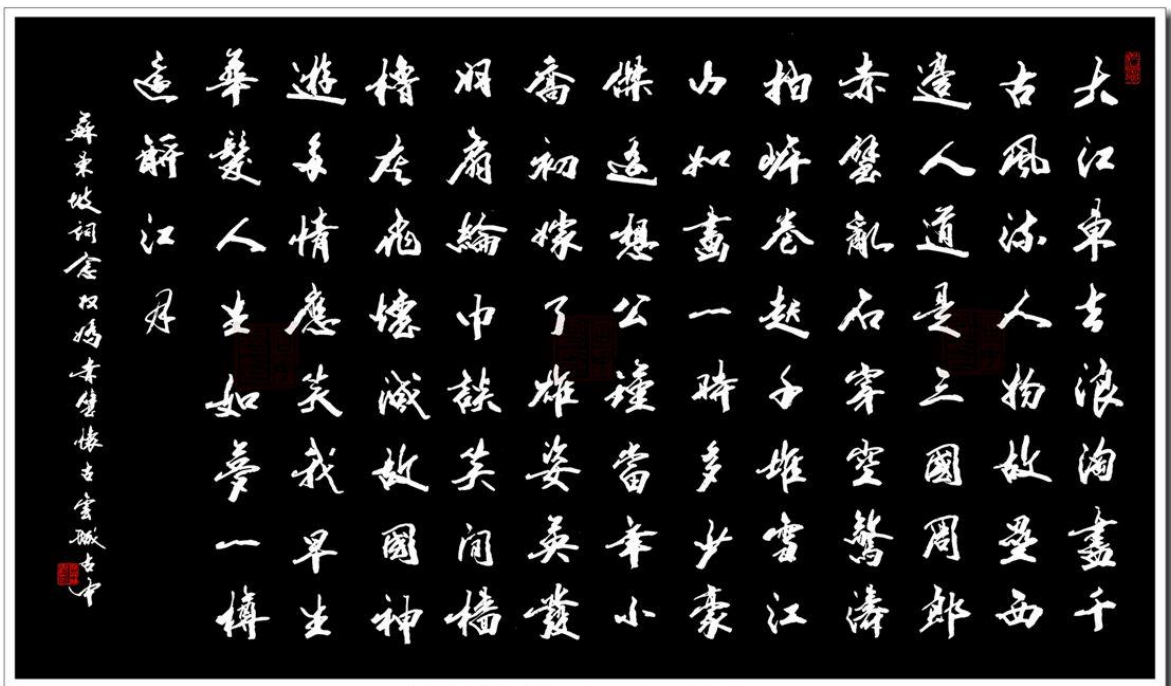 大江東去浪淘盡千
古風流人物故壘西
邊人道是三國周郎
赤壁亂石穿空驚濤
拍岸卷起千堆雪江
山如畫一時多少豪
傑遙想公瑾當年小
喬初嫁了雄姿英發
羽扇綸巾談笑間檣
櫓灰飛煙滅故國神
遊多情應笑我早生
華髮人生如夢一樽
還酹江月
蘇東坡詞念奴嬌赤壁懷古